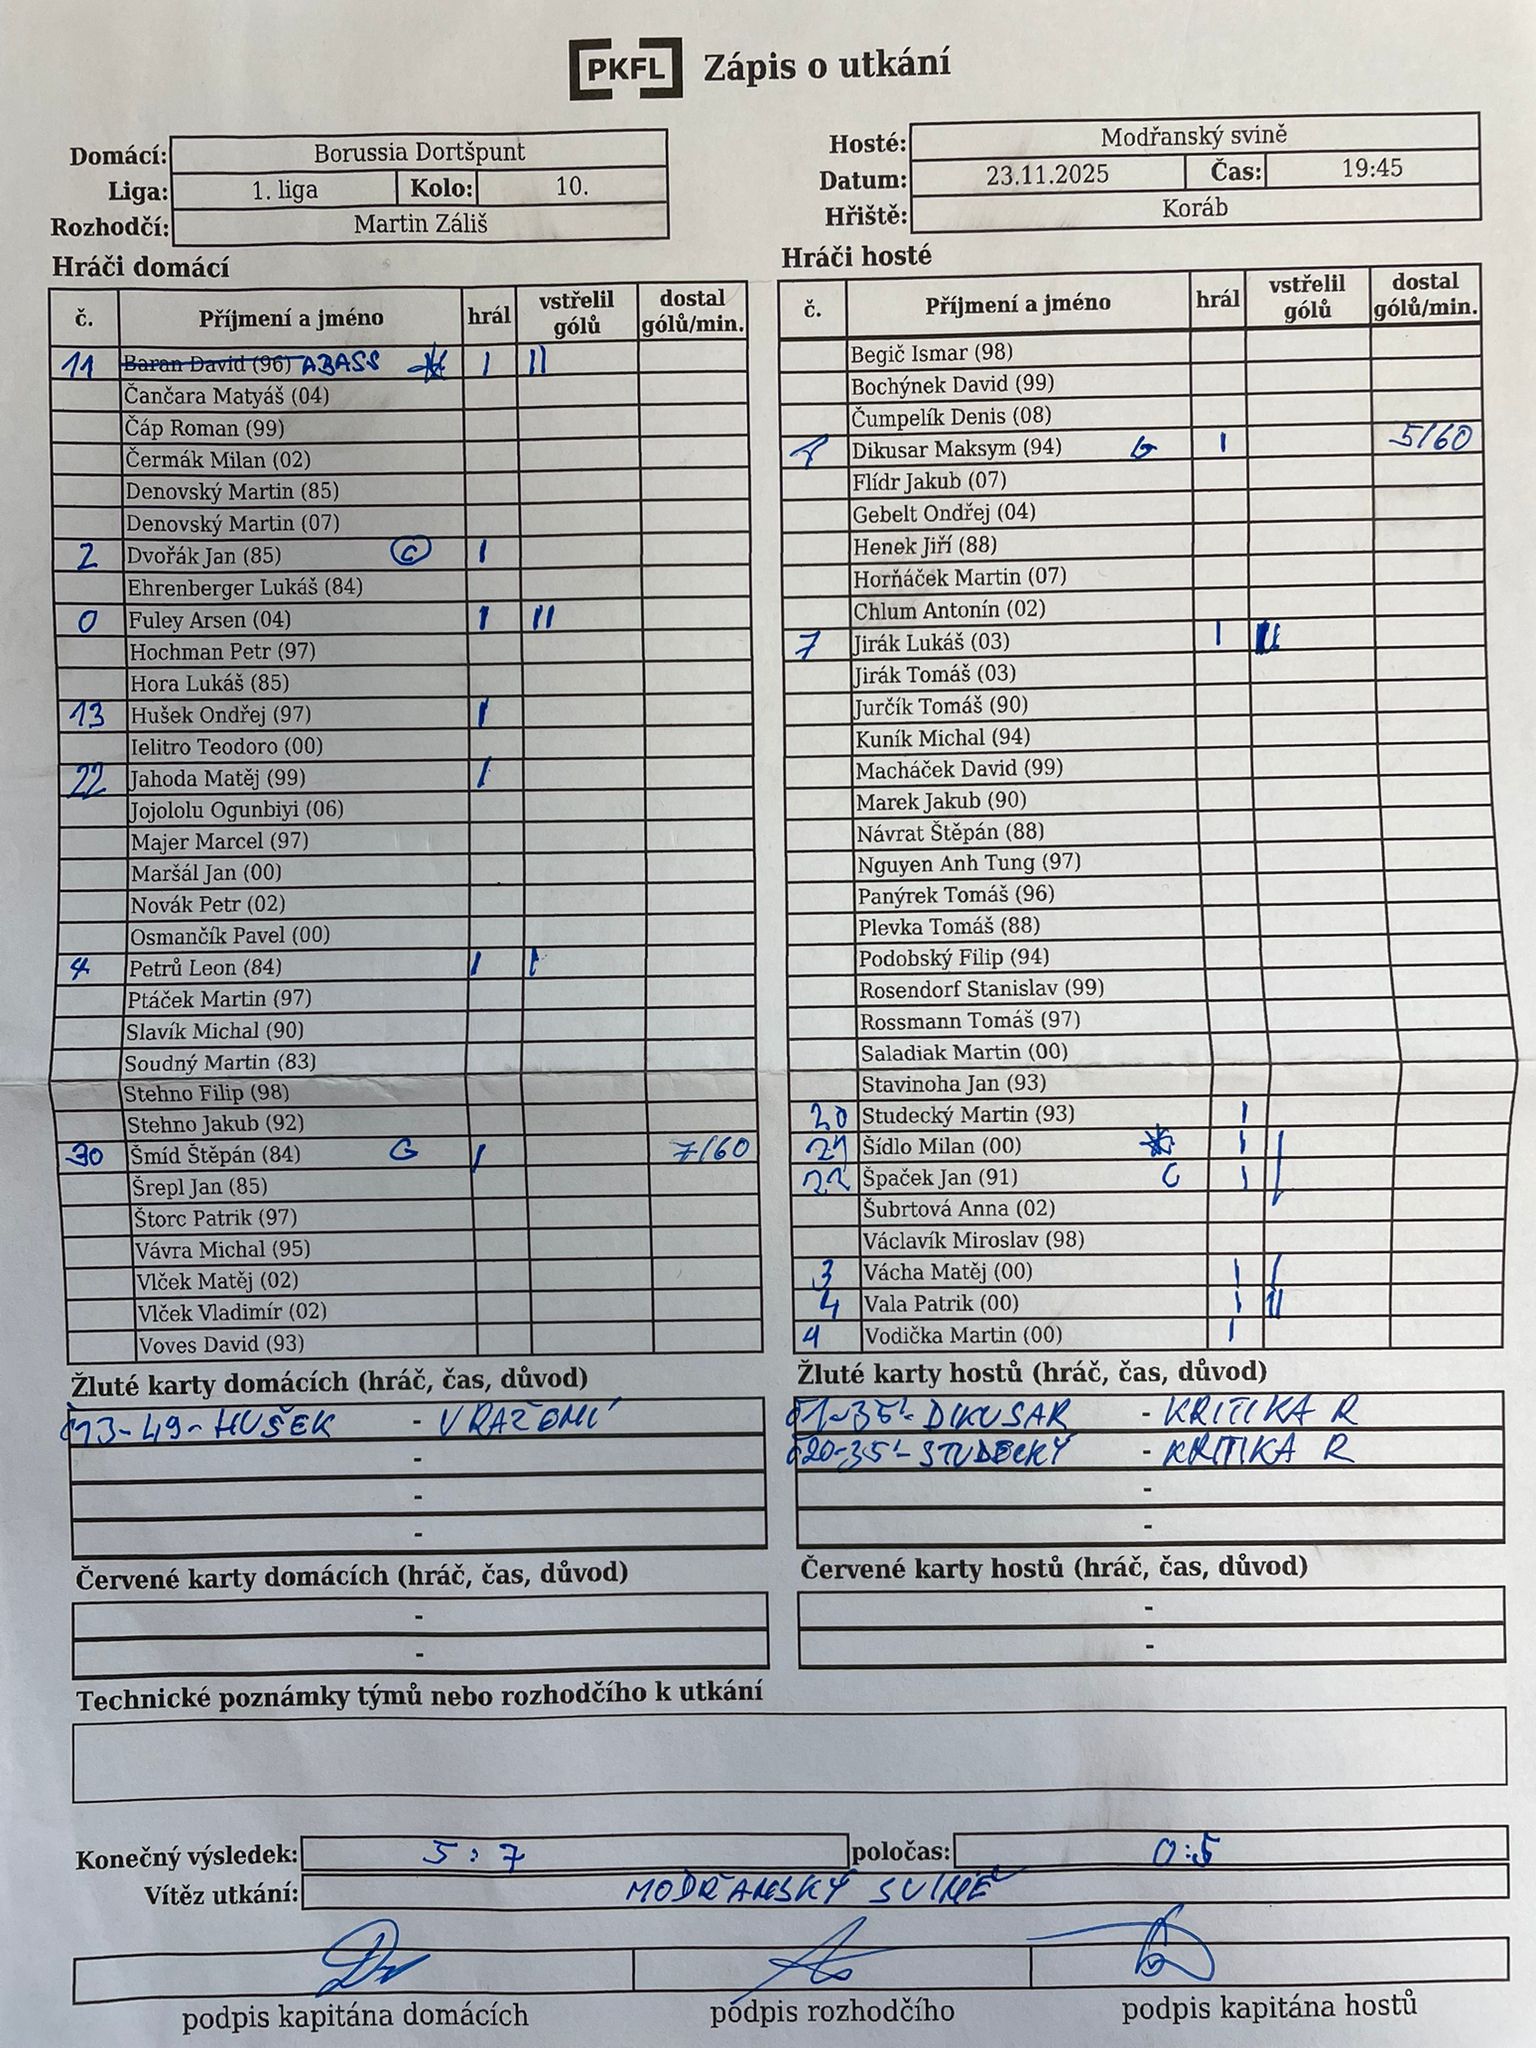 PKFL Zápis o utkání
Domácí: Borussia Dortšpunt
Liga: 1. liga Kolo: 10.
Rozhodčí: Martin Záliš
Hosté: Modřanský svině
Datum: 23.11.2025 Čas: 19:45
Hřiště: Koráb
Hráči domácí
č. Příjmení a jméno hrál vstřelil gólů dostal gólů/min.
11 Baran David (96) ABASS I II
Čančara Matyáš (04)
Čáp Roman (99)
Čermák Milan (02)
Denovský Martin (85)
Denovský Martin (07)
2 Dvořák Jan (85) C I
Ehrenberger Lukáš (84)
0 Fuley Arsen (04) I II
Hochman Petr (97)
Hora Lukáš (85)
13 Hušek Ondřej (97) I
Ielitro Teodoro (00)
22 Jahoda Matěj (99) I
Jojololu Ogunbiyi (06)
Majer Marcel (97)
Maršál Jan (00)
Novák Petr (02)
Osmančík Pavel (00)
4 Petrů Leon (84) I I
Ptáček Martin (97)
Slavík Michal (90)
Soudný Martin (83)
Stehno Filip (98)
Stehno Jakub (92)
30 Šmíd Štěpán (84) G I 7/60
Šrepl Jan (85)
Štorc Patrik (97)
Vávra Michal (95)
Vlček Matěj (02)
Vlček Vladimír (02)
Voves David (93)
Hráči hosté
č. Příjmení a jméno hrál vstřelil gólů dostal gólů/min.
Begič Ismar (98)
Bochýnek David (99)
Čumpelík Denis (08)
1 Dikusar Maksym (94) G I 5/60
Flídr Jakub (07)
Gebelt Ondřej (04)
Henek Jiří (88)
Horňáček Martin (07)
Chlum Antonín (02)
7 Jirák Lukáš (03) I
Jirák Tomáš (03)
Jurčík Tomáš (90)
Kuník Michal (94)
Macháček David (99)
Marek Jakub (90)
Návrat Štěpán (88)
Nguyen Anh Tung (97)
Panýrek Tomáš (96)
Plevka Tomáš (88)
Podobský Filip (94)
Rosendorf Stanislav (99)
Rossmann Tomáš (97)
Saladiak Martin (00)
Stavinoha Jan (93)
20 Studecký Martin (93) I
21 Šídlo Milan (00) I I
22 Špaček Jan (91) C I I
Šubrtová Anna (02)
Václavík Miroslav (98)
3 Vácha Matěj (00) I I
Vala Patrik (00) I II
4 Vodička Martin (00) I
Žluté karty domácích (hráč, čas, důvod)
č13-49-HUŠEK - VRAŽENÍ
-
-
-
Žluté karty hostů (hráč, čas, důvod)
č1-35'-DIKUSAR - KRITIKA R
č20-35'-STUDECKÝ - KRITIKA R
-
-
Červené karty domácích (hráč, čas, důvod)
-
-
Červené karty hostů (hráč, čas, důvod)
-
-
Technické poznámky týmů nebo rozhodčího k utkání
Konečný výsledek: 5:7 poločas: 0:5
Vítěz utkání: MODŘANSKÝ SVINĚ
podpis kapitána domácích podpis rozhodčího podpis kapitána hostů